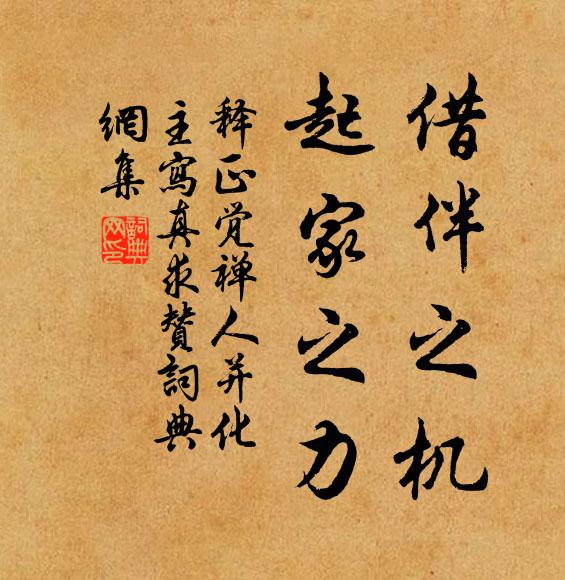 借伴之机
起家之力
释正觉禅人并化
主寫真求赞詞典
網集
詞典
网印